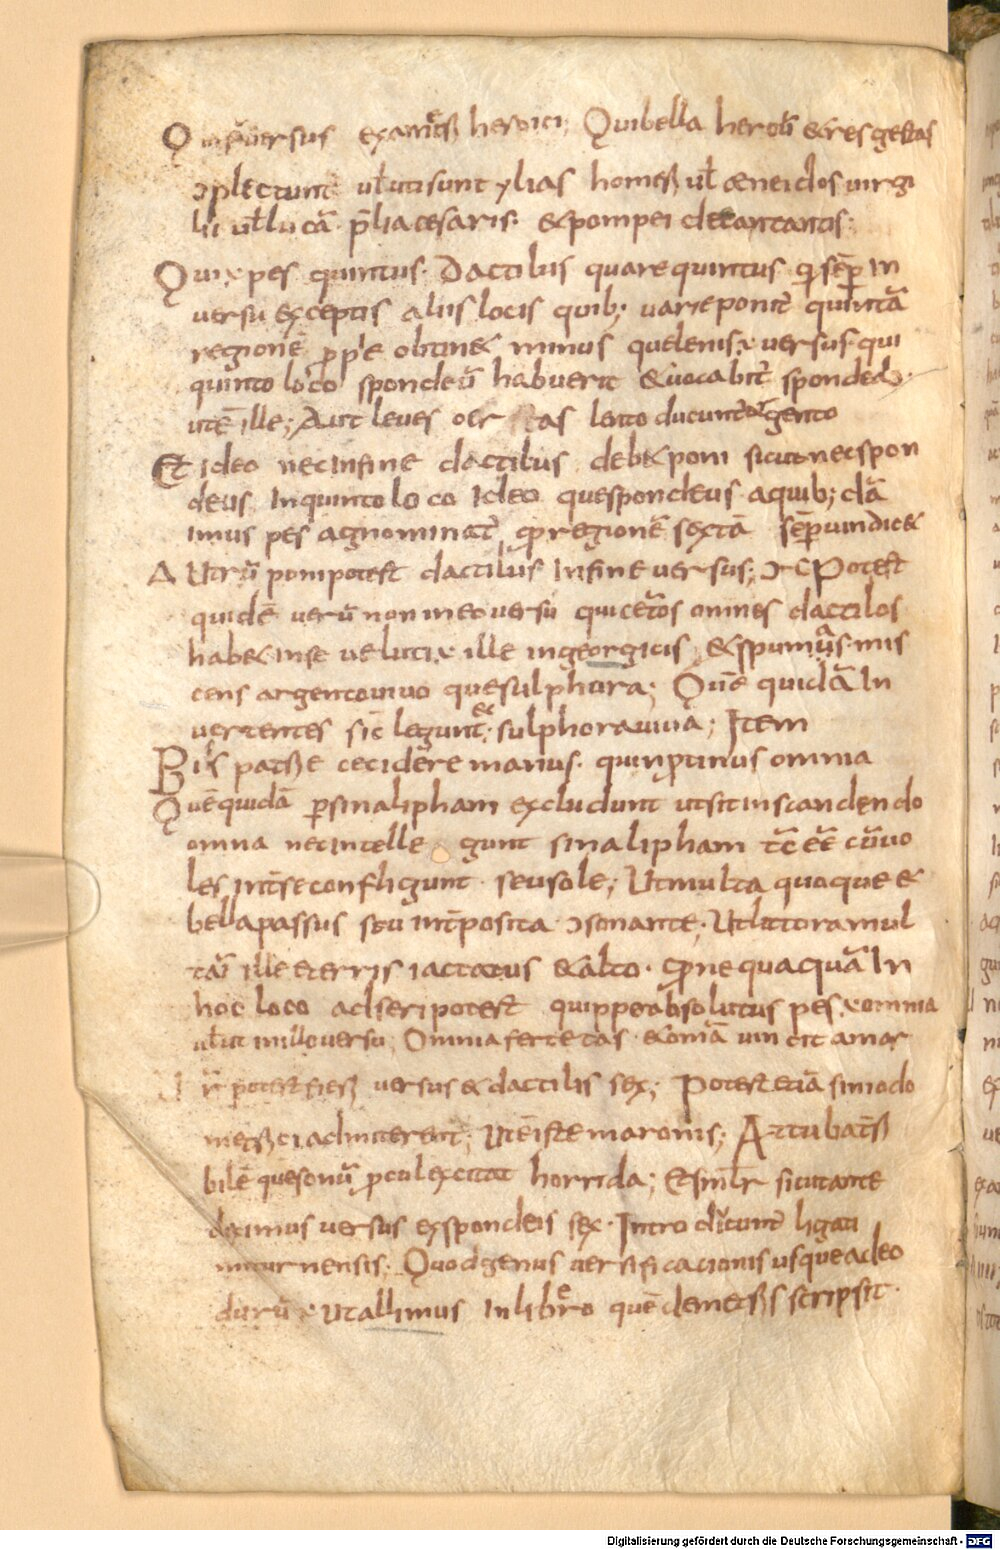 Qui s̄ versus exametꝶ heroici; Qui bella heroū &res gestas
ɔplectunt ut̄ uti sunt ylias homeꝶ ul̄ æneidos uirgi
lii ul̄ lucā p̄lia cesaris. & pompei decantantis;
Qui ÷ pes quintus. Dactilus quare quintus q̄ sēp̄ In
uersu exceptis aliis locis quib; uarie ponit̄ quintā
regionē p̄p̄e obtin& minus que lenis ÷ uersus qui
quinto loco spondeū habuerit & uocabit̄ spondeo.
ut ē ille; Aut leues ocr as lento ducunt argento
Et ideo nec infine dactilus deb& poni sicut nec spon
deus Inquinto loco Ideo que spondeus a quib; dā
imus pes agnominat̄ q̄ regionē sextā sēp̄ uindic&
A Utrū pom potest dactilus Infine uersus; Potest
quidē uerū non in eo uersu qui cet̄os omnes dactilos
hab& inse ueluti ÷ ille in georgicis &spumas mis
cens argento uiuo que sulphura; Quē quidā In
uertentes sic legunt; & sulphora uiua; Item
Bis patꝶe cecidere manus. quin p̄tinus omnia
Quē quidā p̄ sinalipham excludunt ut sit in scandendo
omna nec intelle gunt sinalipham tc̄ eē cū uo
les int̄ se confligunt. seu sole; Ut multa quoque &
bella passus seu int̄posita ɔsonante. Ut littora mul
tū ille et terris iactatus & alto. q̄ ne quaquā In
hoc loco adseri potest quippe absolutus pes ÷ omnia
ul̄ut in illo uersu; Omnia fert etas & omā uincit amor
potest fieꝶ uersus & dactilis sex; Potest etiā sinodo
metꝶ ci adint̄erent; Ut ē iste maronis; At tuba t̄ꝶ
bilē que sonū p̄cul excitat horrida; Et simlr̄ sicut ante
dximus uersus ex spondeis sex. Introducunt ligati
minturnensis. Quod genus uersificacionis usque adeo
durū ÷ ut allimus In libro quē de metꝶs scripsit.
Digitalisierung gefördert durch die Deutsche Forschungsgemeinschaft - DFG